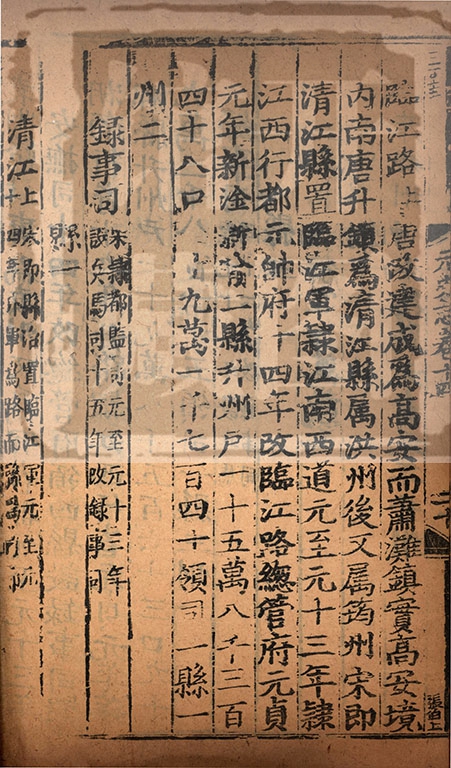 元史志卷十四
二十
臨江路上唐改建成爲高安而蕭灘鎮實高安境
内南唐升鎮爲清江縣属洪州後又属筠州宋即
清江縣置臨江軍隸江南西道元至元十三年隸
江西行都元帥府十四年改臨江路總管府元貞
元年新淦新喻二縣升州户一十五萬八千三百
四十八口七十九萬一千七百四十領司一縣一
州二
録事司
宋隸都監司元至元十三年
設兵馬司十五年改録事司
縣一
清江上
宋即縣治置臨江軍元至元
十四年升軍爲路而縣爲